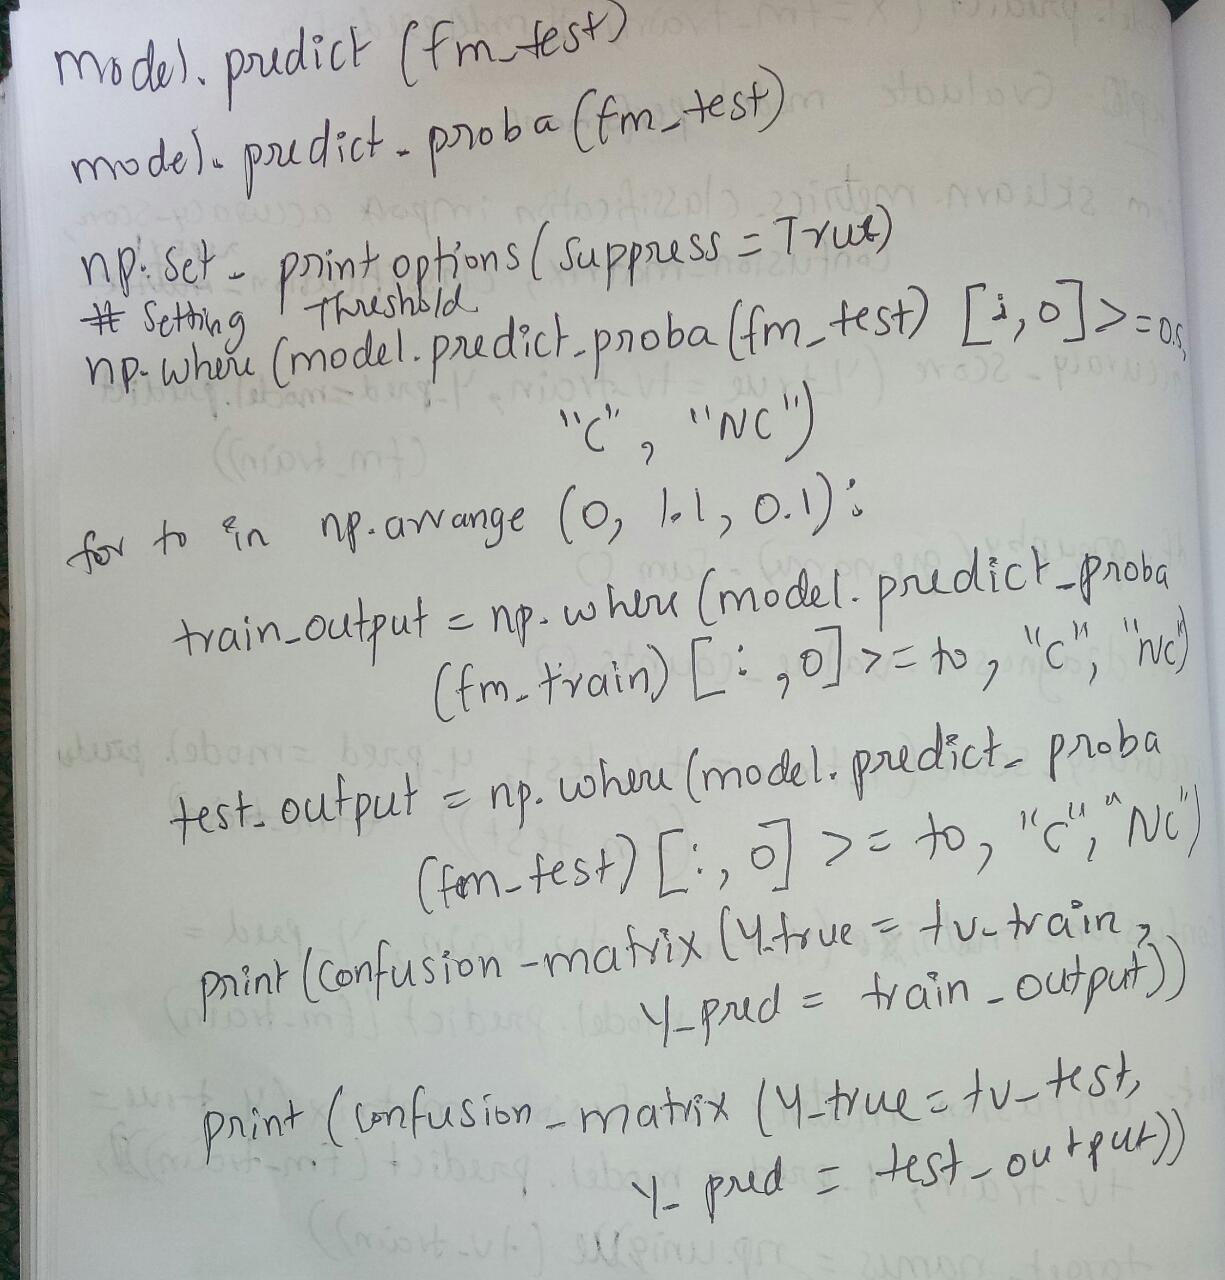 model.predict (fm_test)
model.predict_proba (fm_test)
np.set_printoptions (suppress = True)
# Setting Threshold
np.where (model.predict_proba (fm_test) [:,0] >= 0.5,
"C", "NC")
for to in np.arrange (0, 1.1, 0.1):
train_output = np.where (model.predict_proba
(fm_train) [:,0] >= to, "C", "NC")
test_output = np.where (model.predict_proba
(fm_test) [:,0] >= to, "C", "NC")
print (confusion_matrix (y_true = tv_train,
y_pred = train_output))
print (confusion_matrix (y_true = tv_test,
y_pred = test_output))